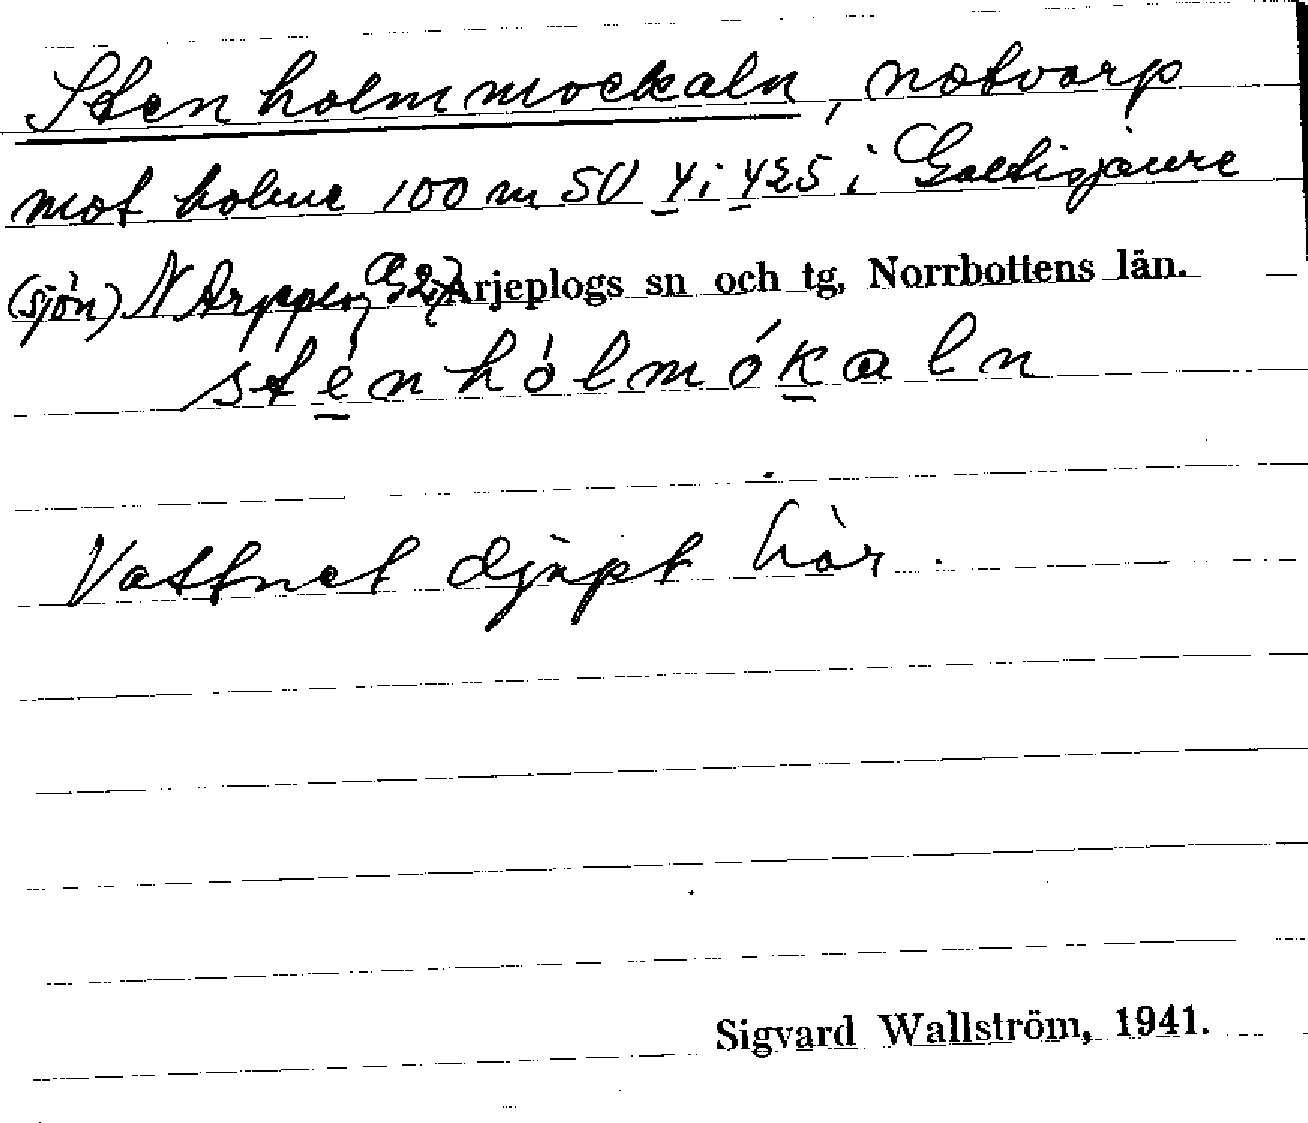 Stenholmmockaln, notvarp
mot holme 100 m SV 4 i 425 i Galtisjaure
(sjön) N Arjeplogs sn och tg, Norrbottens län.
sténhólmókaln
Vattnet djupt här.
Sigvard Wallström, 1941.